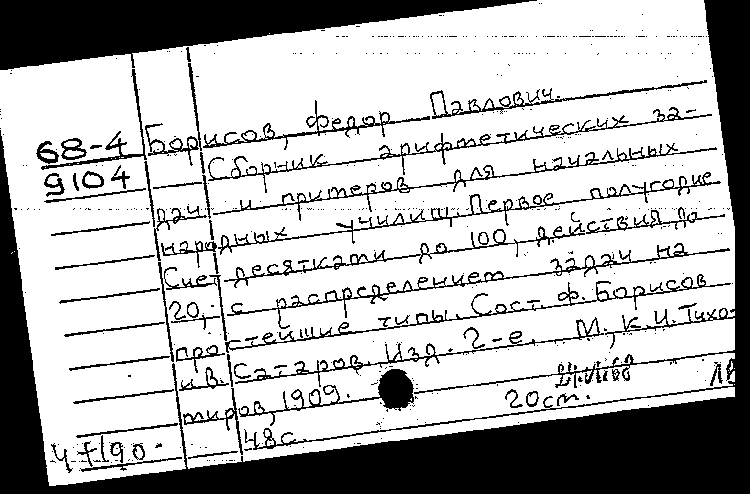 68-4
9104
Борисов, Федор Павлович.
Сборник арифметических за-
дач и примеров для начальных
народных училищ. Первое полугодие
Счет десятками до 100, действия до
20, с распределением задач на
простейшие типы. Сост. Ф. Борисов
и В. Сатаров. Изд. 2-е. М., К. И. Тихо-
миров, 1909.
48 с. 20 см.
18